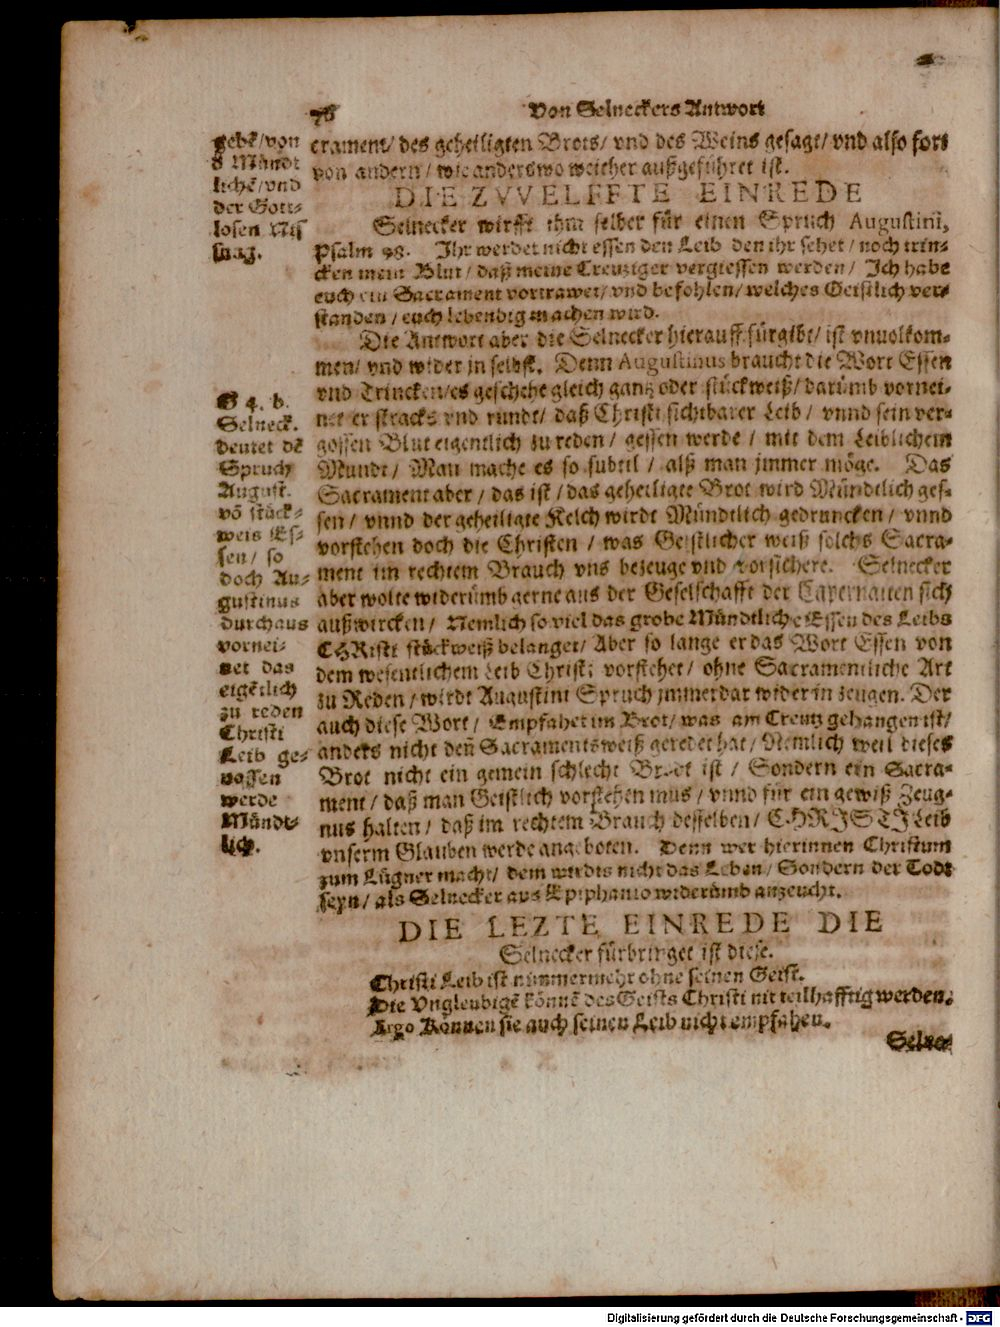 76 Von Selneckers Antwort
crament/ des geheiligten Brots/ vnd des Weins gesagt/ vnd also fort
von andern/ wie anderswo weither außgeführet ist.
DIE ZVVELFFTE EINREDE
Selnecker wirfft ihm selber für einen Spruch Augustini,
Psalm 98. Ihr werdet nicht essen den Leib den ihr sehet/ noch trin-
cken mein Blut/ daß meine Creuziger vergiessen werden/ Ich habe
euch ein Sacrament vortrawet/ vnd befohlen/ welches Geistlich ver-
standen/ euch lebendig machen wird.
Die Antwort aber die Selnecker hierauff fürgibt/ ist vnuolkom-
men/ vnd wider in selbst. Denn Augustinus braucht die Wort Essen
vnd Trincken/es geschehe gleich gantz oder stückweiß/ darümb vornei-
net er stracks vnd rundt/ daß Christi sichtbarer Leib/ vnnd sein ver-
gossen Blut eigentlich zu reden/ gessen werde/ mit dem Leiblichem
Mundt/ Man mache es so subtil/ alß man jmmer möge. Das
Sacrament aber/ das ist/ das geheiligte Brot wird Mündtlich ges-
sen/ vnnd der geheiligte Kelch wirdt Mündtlich gedruncken/ vnnd
vorstehen doch die Christen/ was Geistlicher weiß solchs Sacra-
ment im rechtem Brauch vns bezeuge vnd vorsichere. Selnecker
aber wolte widerümb gerne aus der Geselschafft der Capernaiten sich
außwircken/ Nemlich so viel das grobe Mündtliche Essen des Leibs
CHRisti stückweiß belanget/ Aber so lange er das Wort Essen von
dem wesentlichem Leib Christi vorstehet/ ohne Sacramentliche Art
zu Reden/ wirdt Augustini Spruch jmmerdar wider in zeugen. Der
auch diese Wort/ Empfahet im Brot/ was am Creutz gehangen ist/
anders nicht deñ Sacramentsweiß geredet hat/ Nemlich weil dieses
Brot nicht ein gemein schlecht Brodt ist/ Sondern ein Sacra-
ment/ daß man Geistlich vorstehen mus/ vnnd für ein gewiß Zeug-
nus halten/ daß im rechtem Brauch desselben/ CHRISTI Leib
vnserm Glauben werde angeboten. Denn wer hierinnen Christum
zum Lügner macht/ dem wirdts nicht das Leben/ Sondern der Todt
seyn/ als Selnecker aus Epiphanio widerümb anzeucht.
DIE LEZTE EINREDE DIE
Selnecker fürbringet ist diese.
Christi Leib ist nimmermehr ohne seinen Geist.
Die Vngleubigē könnē des Geists Christi nit teilhafftig werden.
Ergo Können sie auch seinen Leib nicht empfahen.
Selne-
gebē/von
d Mündt
lichē/vnd
der Gott-
losen Nis
sung.
G 4. b.
Selneck.
deutet dē
Spruch
August.
vō stück-
weis Es-
sen/ so
doch Au-
gustinus
durchaus
vornei-
net das
eigētlich
zu reden
Christi
Leib ge-
nossen
werde
Mündt-
lich.
Digitalisierung gefördert durch die Deutsche Forschungsgemeinschaft - DFG